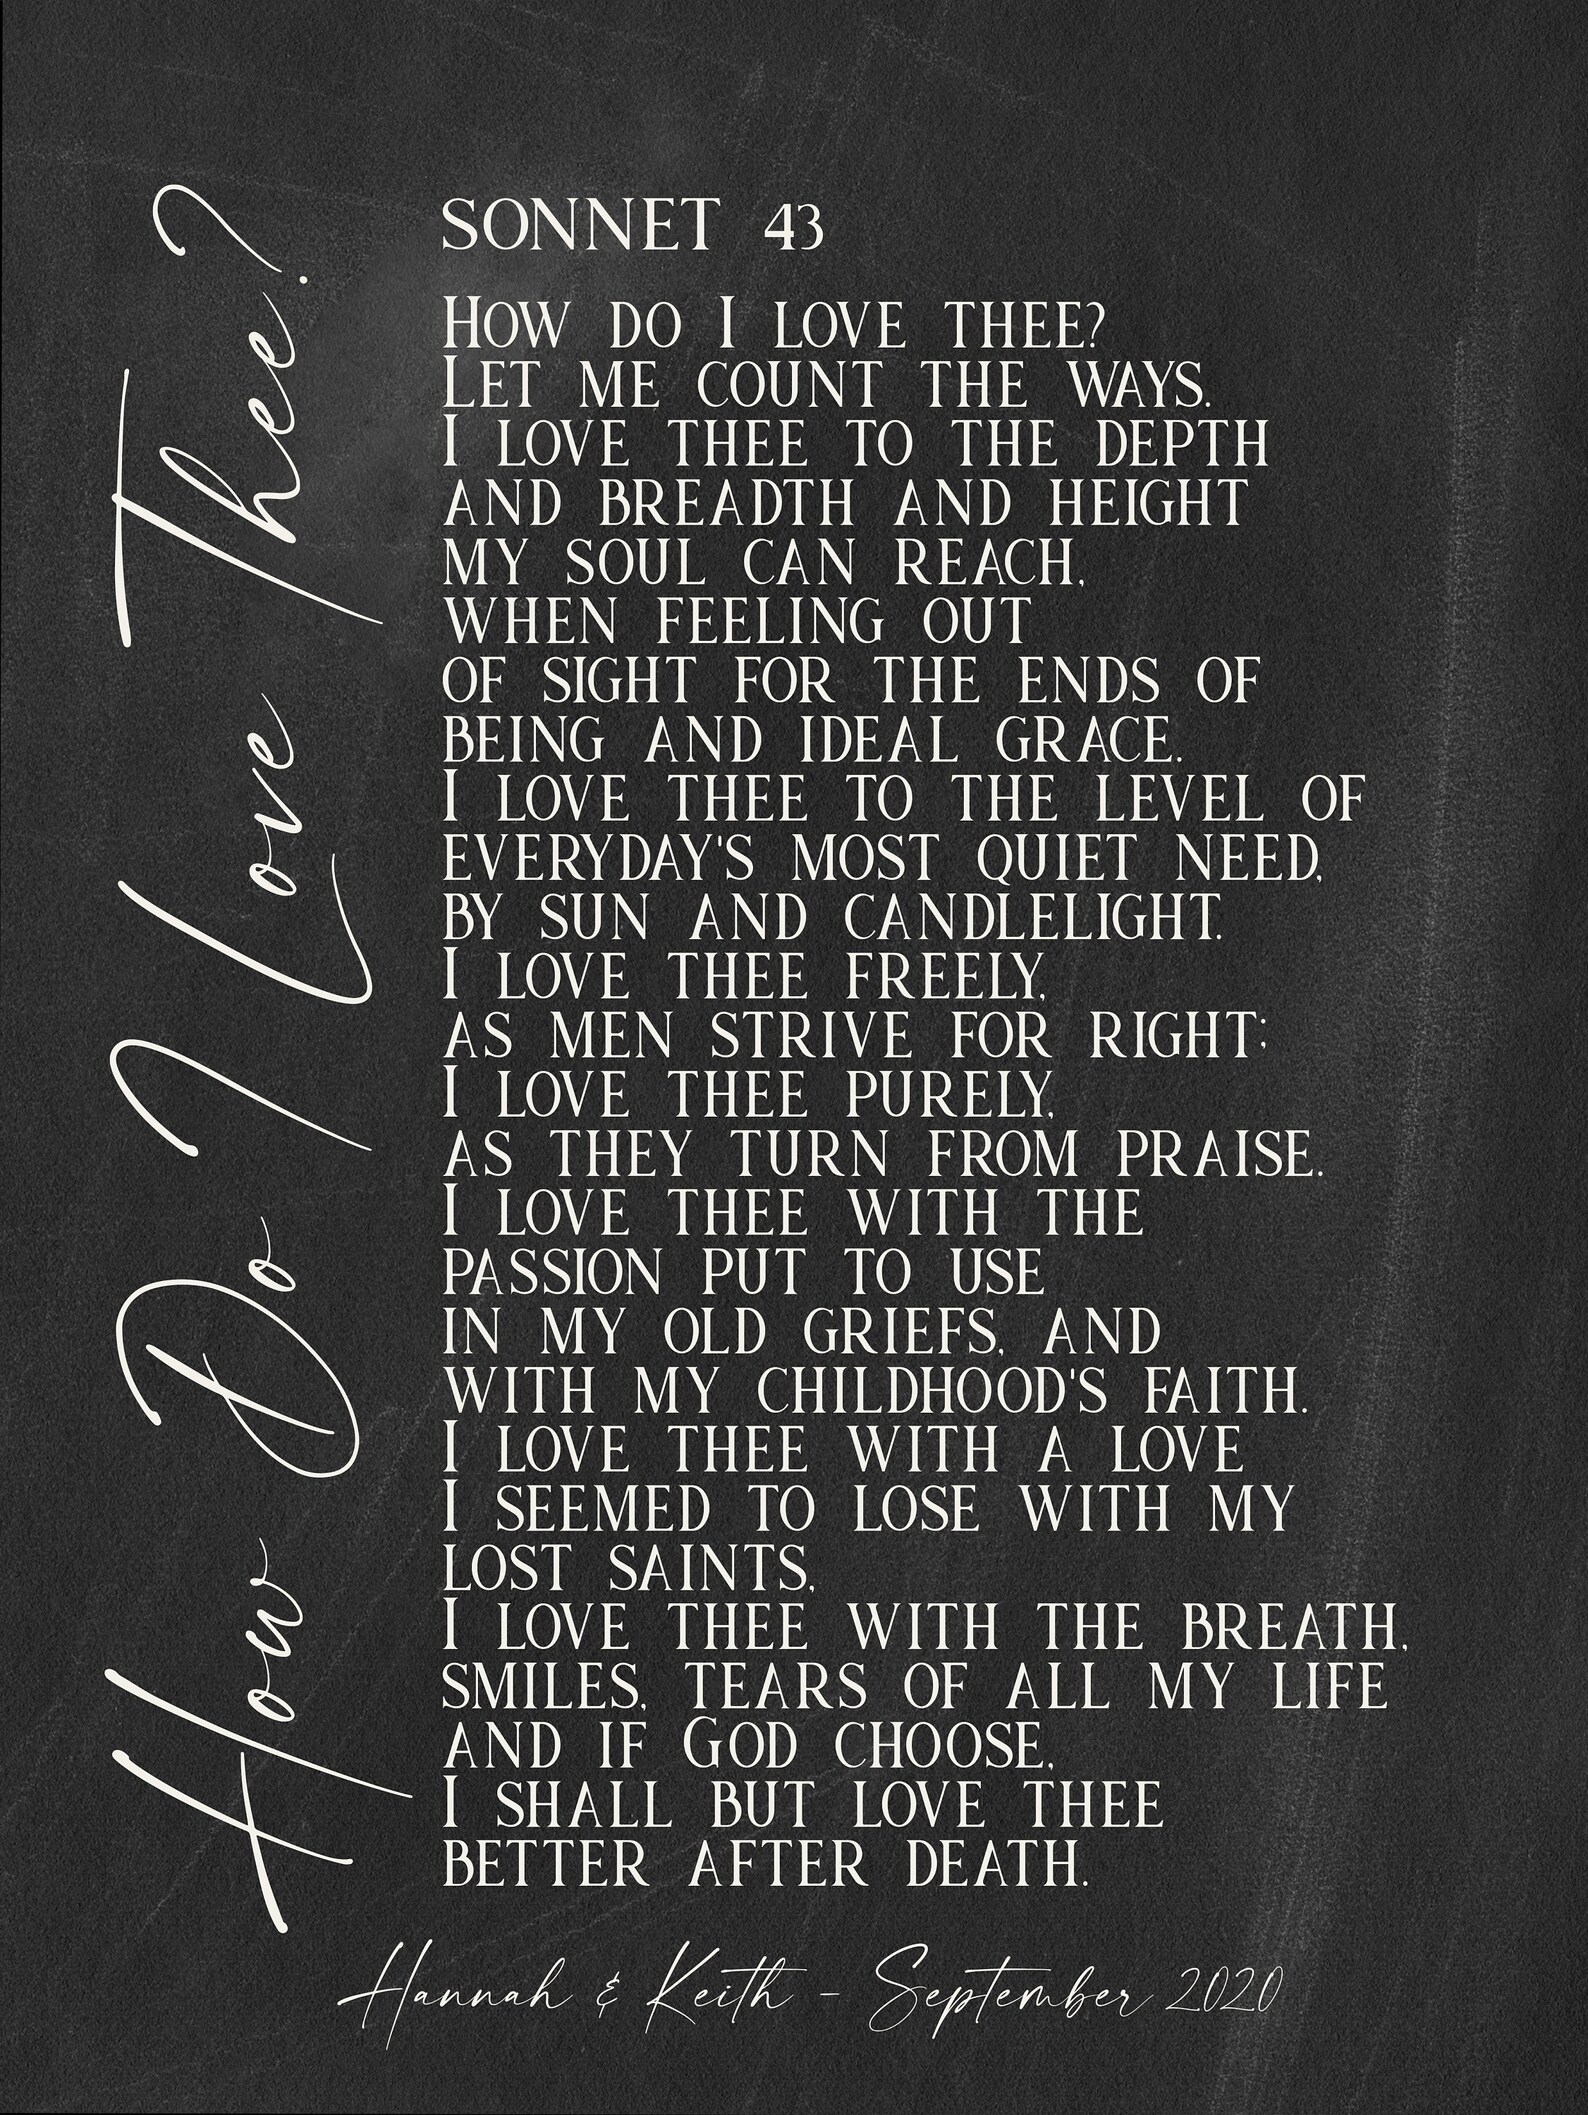 How Do I Love Thee?
SONNET 43
HOW DO I LOVE THEE?
LET ME COUNT THE WAYS.
I LOVE THEE TO THE DEPTH
AND BREADTH AND HEIGHT
MY SOUL CAN REACH,
WHEN FEELING OUT
OF SIGHT FOR THE ENDS OF
BEING AND IDEAL GRACE.
I LOVE THEE TO THE LEVEL OF
EVERYDAY'S MOST QUIET NEED,
BY SUN AND CANDLELIGHT.
I LOVE THEE FREELY,
AS MEN STRIVE FOR RIGHT;
I LOVE THEE PURELY,
AS THEY TURN FROM PRAISE.
I LOVE THEE WITH THE
PASSION PUT TO USE
IN MY OLD GRIEFS, AND
WITH MY CHILDHOOD'S FAITH.
I LOVE THEE WITH A LOVE
I SEEMED TO LOSE WITH MY
LOST SAINTS,
I LOVE THEE WITH THE BREATH,
SMILES, TEARS OF ALL MY LIFE
AND IF GOD CHOOSE,
I SHALL BUT LOVE THEE
BETTER AFTER DEATH.
Hannah & Keith - September 2020